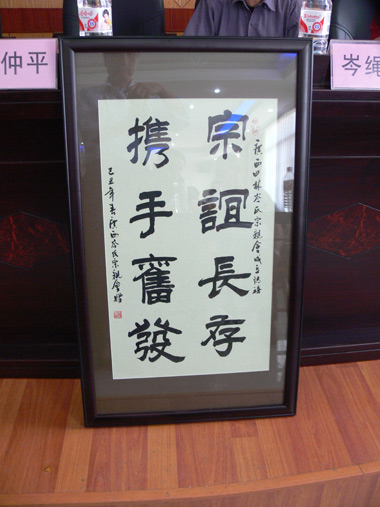 仲平
岑绳
廣西田林岑氏宗親會成立誌禧
宗誼長存
携手奮發
己丑年春廣西岑氏宗親會贈